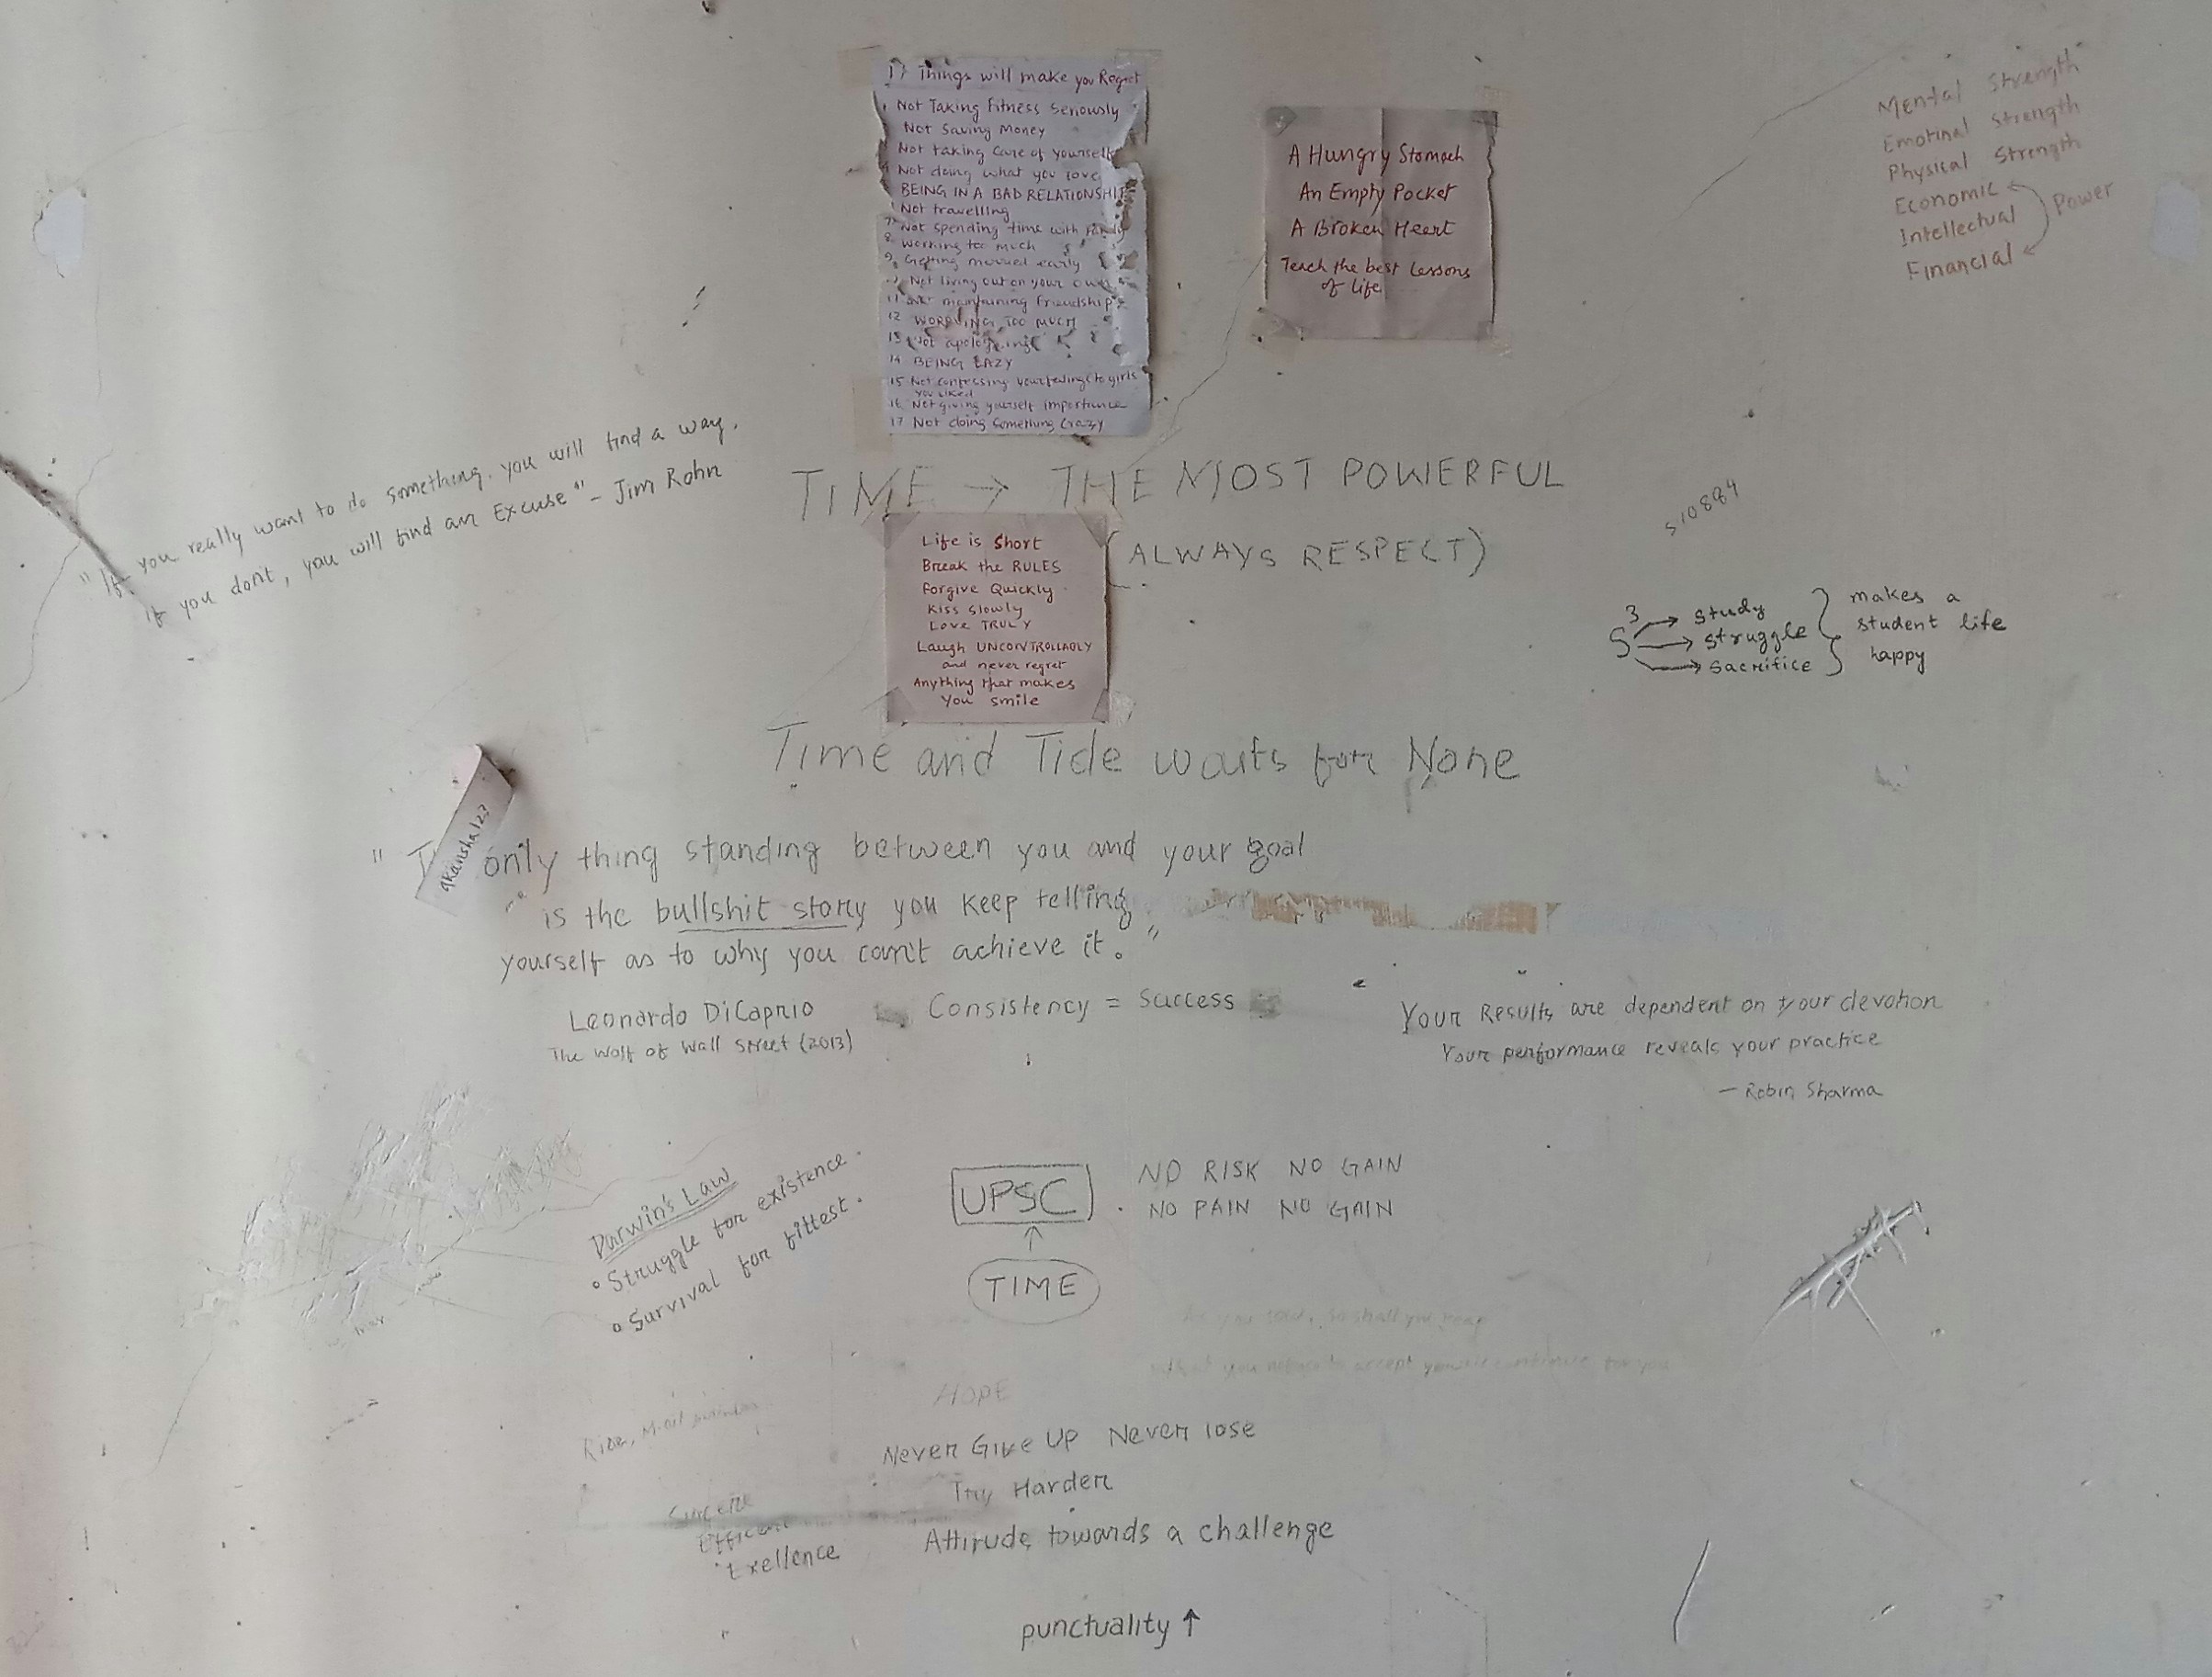 17 Things will make you Regret
1, Not Taking Fitness Seriously
Not Saving Money
Not taking care of yourself
Not doing what you love
BEING IN A BAD RELATIONSHIP
Not travelling
7, Not spending time with Family
8, Working too much
9, Getting married early
Not living out on your own
11 Not maintaining friendship
12 WORRYING TOO MUCH
13 Not apologizing
14 BEING LAZY
15 Not confessing your feelings to girls
you liked
16 Not giving yourself importance
17 Not doing something Crazy
A Hungry Stomach
An Empty Pocket
A Broken Heart
Teach the best Lessons
of life
Mental Strength
Emotinal Strength
Physical Strength
Economic
Intellectual
Power
Financial
"If you really want to do something, you will find a way,
if you don't, you will find an Excuse" - Jim Rohn
TIME → THE MOST POWERFUL
(ALWAYS RESPECT)
510884
Life is Short
Break the RULES
Forgive Quickly
Kiss Slowly
Love TRULY
Laugh UNCONTROLLABLY
and never regret
Anything that makes
You smile
S³ → Study
→ struggle
→ sacrifice
makes a
student life
happy
Time and Tide waits for None
akansha123
" only thing standing between you and your goal
is the bullshit story you keep telling
yourself as to why you can't achieve it."
Leonardo DiCaprio
The Wolf of Wall Street (2013)
Consistency = Success
Your Results are dependent on your devotion
Your performance reveals your practice
— Robin Sharma
Darwin's Law
• Struggle for existence.
• Survival for fittest.
UPSC
↑
TIME
NO RISK NO GAIN
• NO PAIN NO GAIN
so shall you reap
you to accept continue for you
HOPE
Never Give UP Never lose
Try Harder
Sincere
Efficient
Exellence
Attirude towards a challenge
punctuality ↑